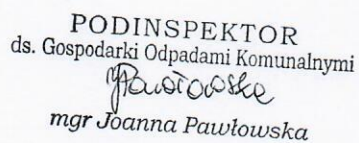 PODINSPEKTOR
ds. Gospodarki Odpadami Komunalnymi
JPawłowska
mgr Joanna Pawłowska